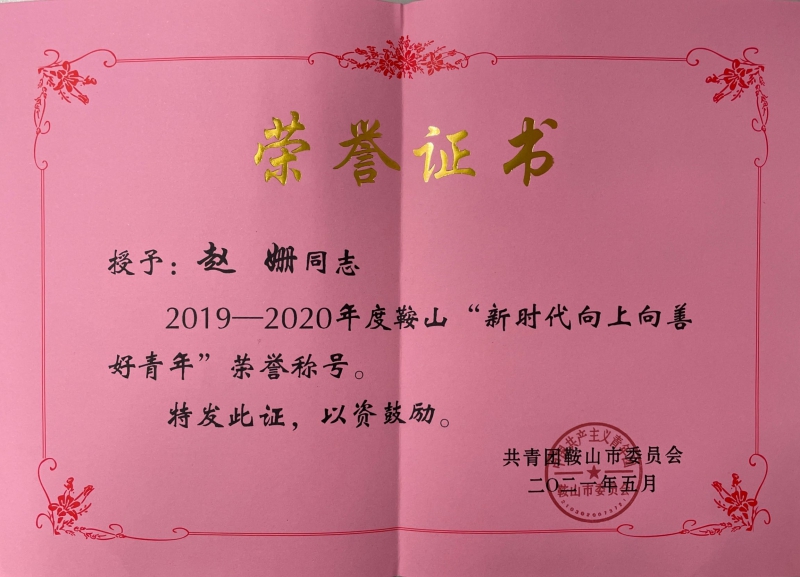 荣誉证书
授予：赵 姗同志
2019—2020年度鞍山“新时代向上向善
好青年”荣誉称号。
特发此证，以资鼓励。
共青团鞍山市委员会
二〇二一年五月
中国共产主义青年团
鞍山市委员会